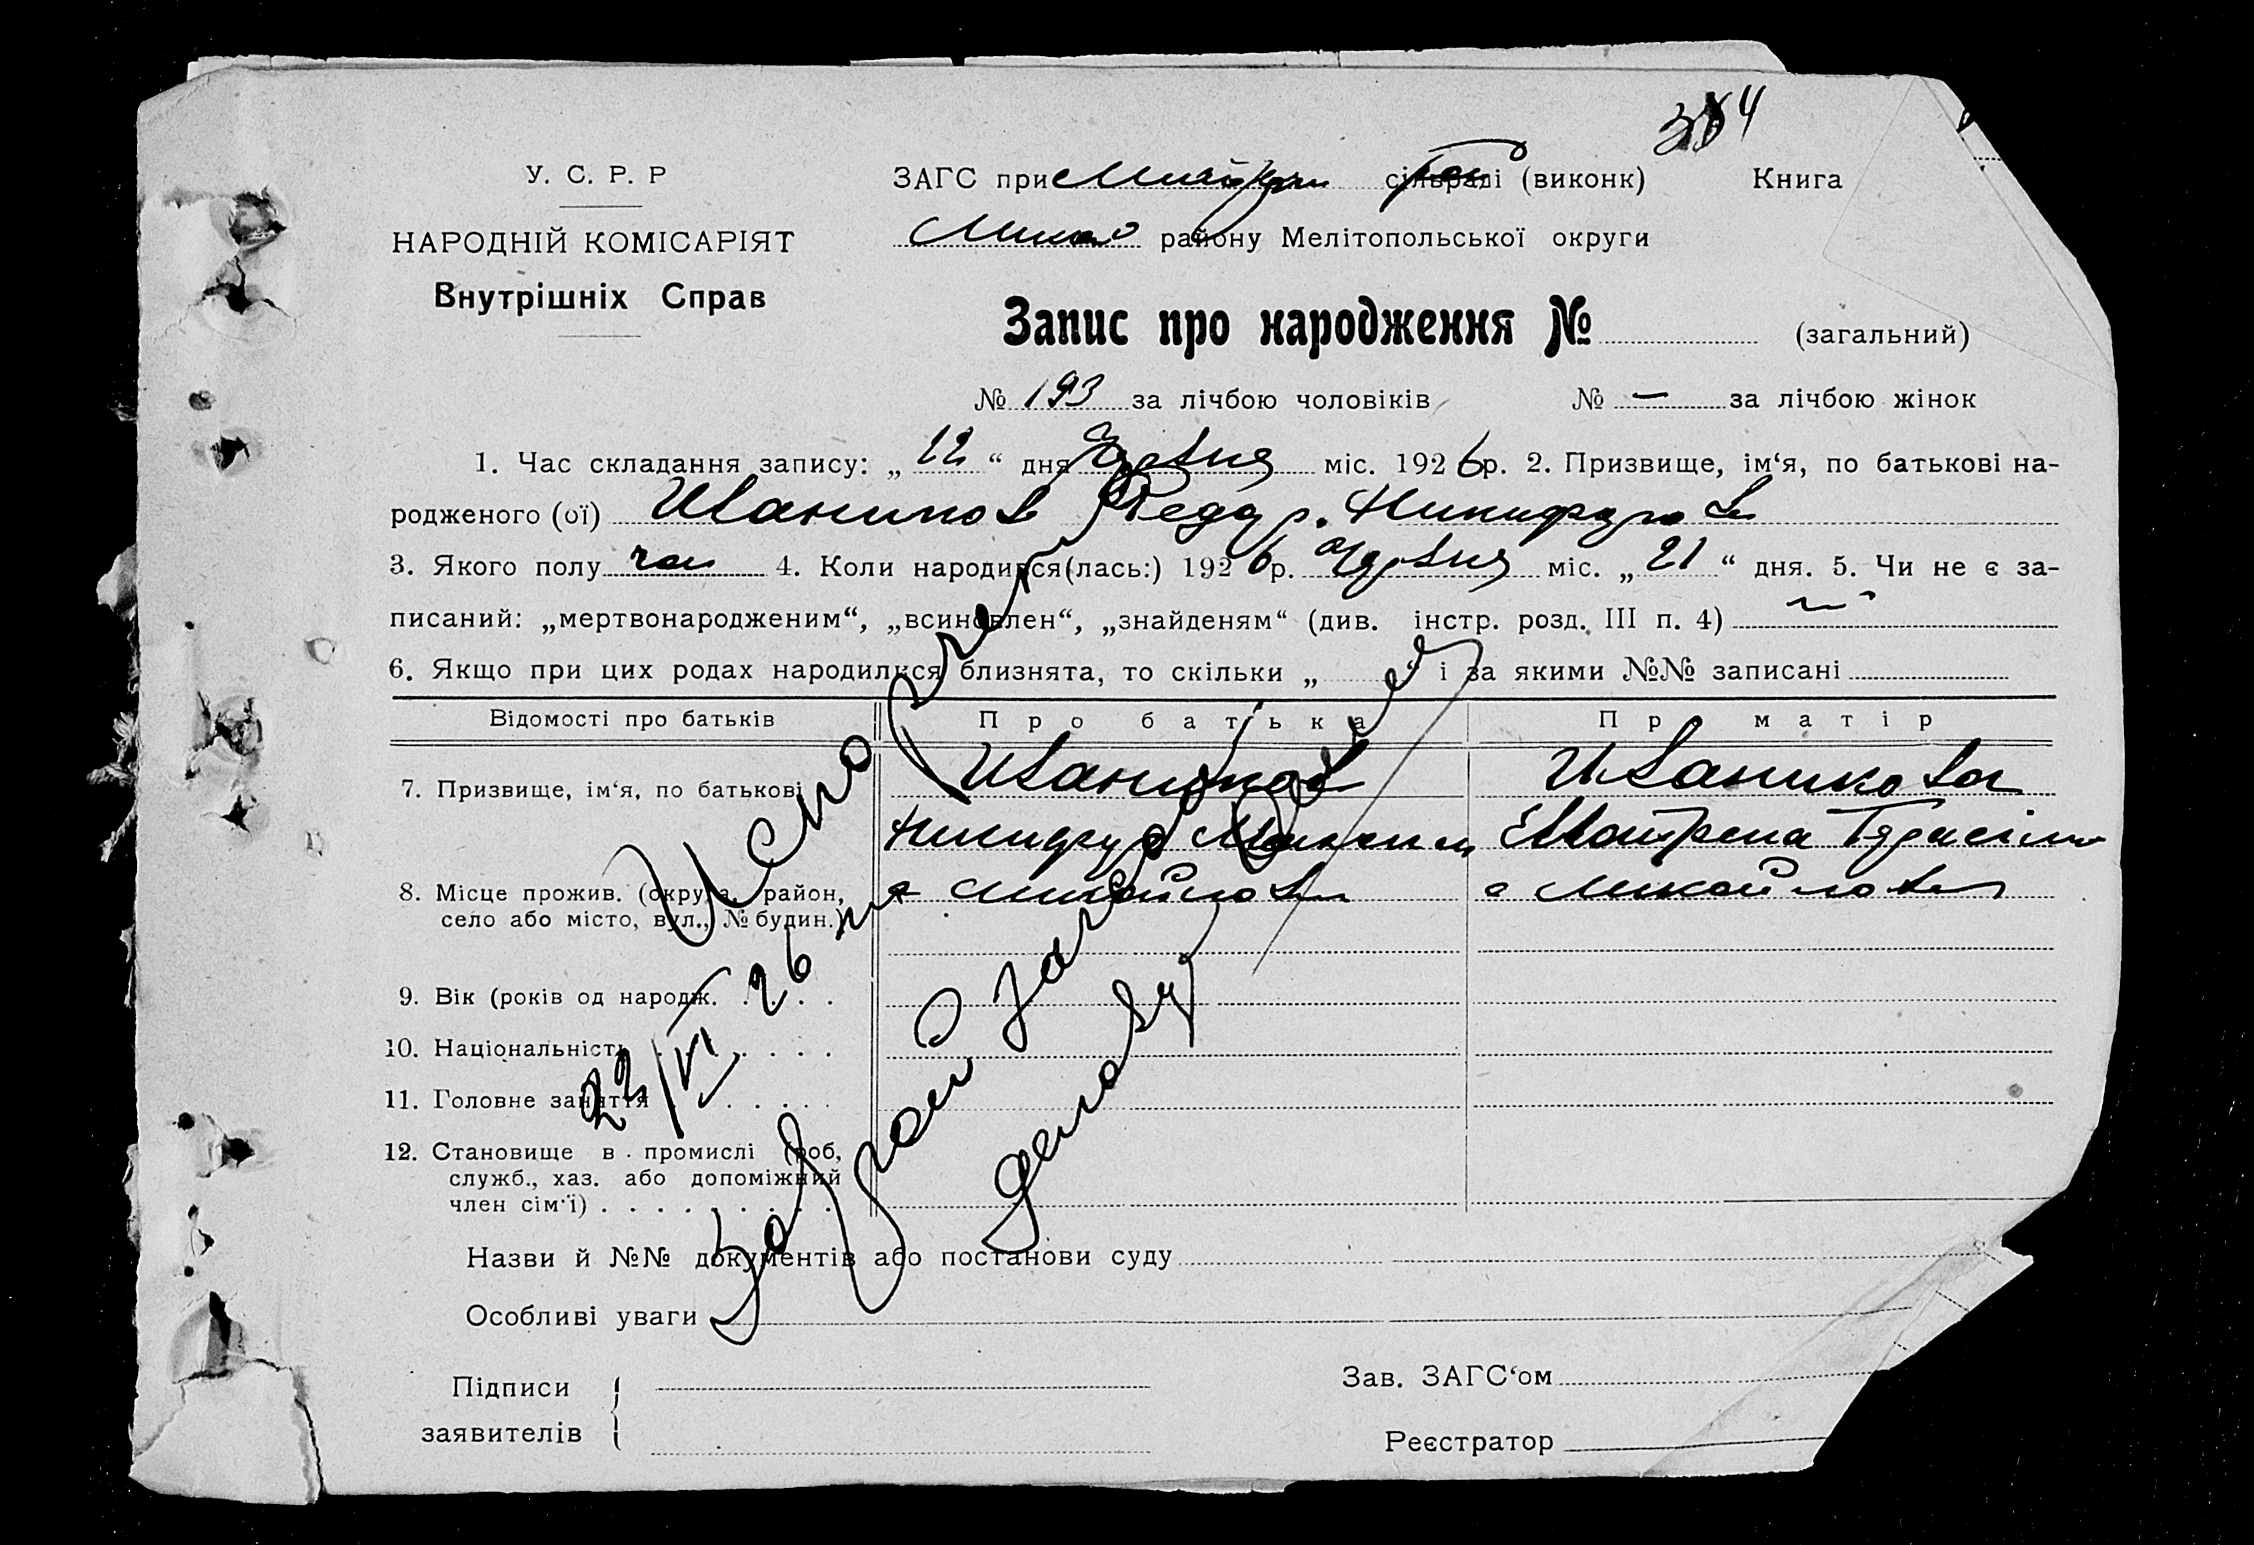 384
У. С. Р. Р
ЗАГС при сільраді (виконк) Книга
НАРОДНІЙ КОМІСАРІЯТ
району Мелітопольської округи
Внутрішніх Справ
Запис про народження № (загальний)
№ 193 за лічбою чоловіків № — за лічбою жінок
1. Час складання запису: „ 22 “ дня Червня міс. 1926 р. 2. Призвище, ім‘я, по батькові на-
родженого (ої) Иваников Федор Никифоров
3. Якого полу чол 4. Коли народився(лась:) 1926 р. Червня міс. „ 21 “ дня. 5. Чи не є за-
писаний: „мертвонародженим“, „всиновлен“, „знайденям“ (див. інстр. розд. III п. 4)
6. Якщо при цих родах народилися близнята, то скільки „ “ і за якими №№ записані
Відомості про батьків Про батька Пр матір
7. Призвище, ім‘я, по батькові Иваников Иваникова
Никифор Матрена
8. Місце прожив. (округа, район, с Михайловка с Михайловка
село або місто, вул., № будин.)
9. Вік (років од народж. . . . .
10. Національність . . . . .
11. Головне заняття . . . . .
12. Становище в промислі (роб,
служб., хаз. або допоміжний
член сім‘ї) . . . . . . . . .
Назви й №№ документів або постанови суду
Особливі уваги
Підписи
заявителів
Зав. ЗАГС‘ом
Реєстратор
Испорчен
22/VI 26